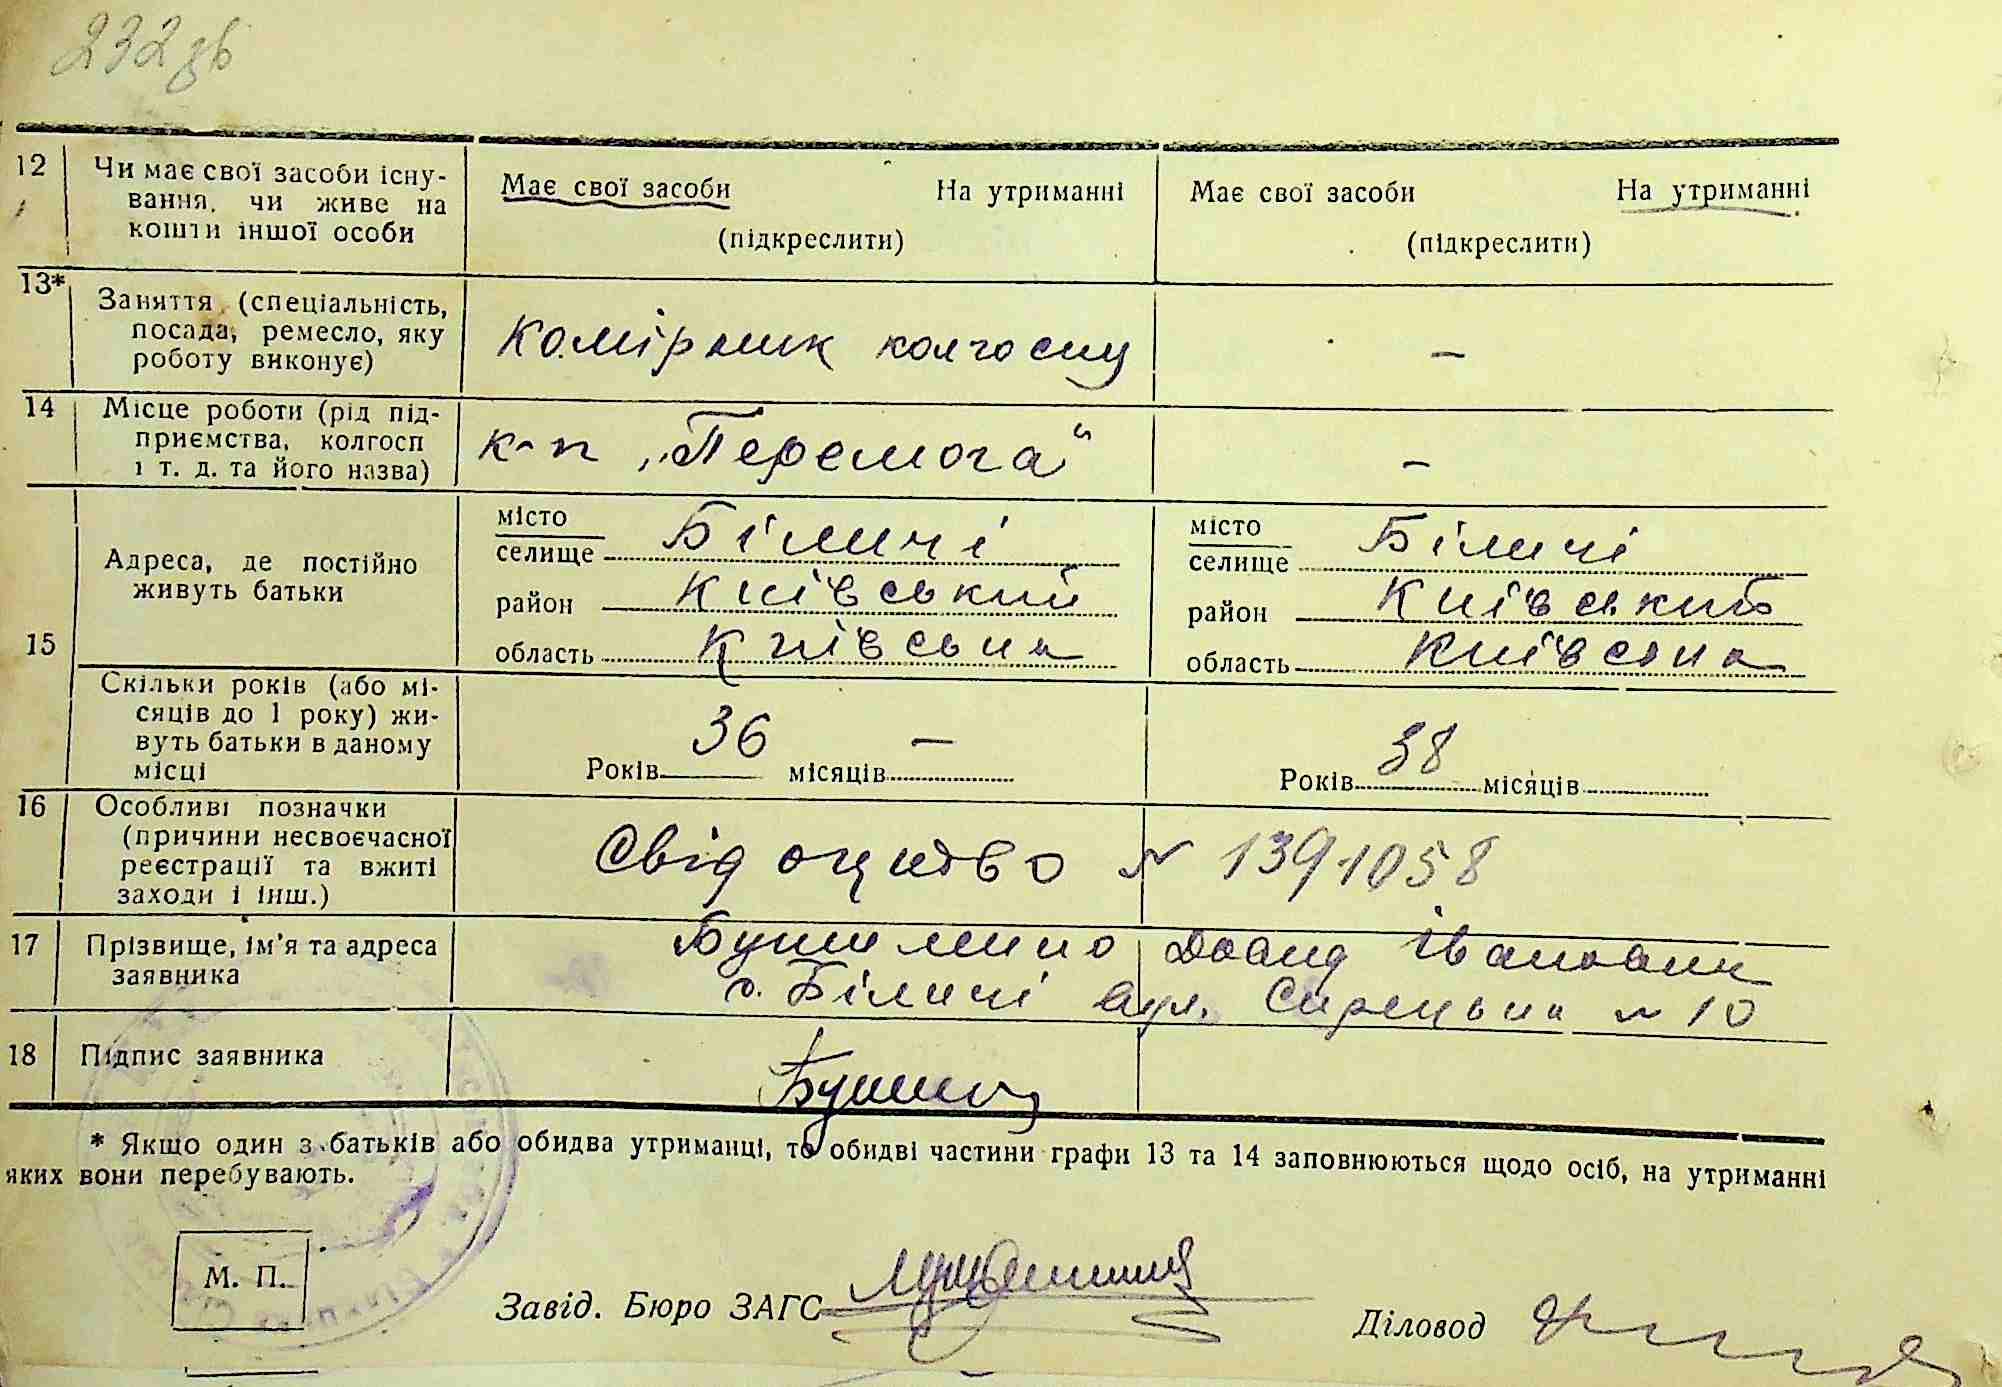 232 зв
12 Чи має свої засоби існу- Має свої засоби На утриманні Має свої засоби На утриманні
вання, чи живе на
кошти іншої особи (підкреслити) (підкреслити)
13* Заняття (спеціальність,
посада, ремесло, яку Комірник колгоспу —
роботу виконує)
14 Місце роботи (рід під-
приємства, колгосп к-п „Перемога“ —
і т. д. та його назва)
15 Адреса, де постійно
живуть батьки
місто
селище Біличі
район Київський
область Київська
місто
селище Біличі
район Київський
область Київська
Скільки років (або мі-
сяців до 1 року) жи-
вуть батьки в даному
місці
Років 36 місяців —
Років 38 місяців
16 Особливі позначки
(причини несвоєчасної
реєстрації та вжиті
заходи і інш.)
Свідоцтво № 1391058
17 Прізвище, ім'я та адреса
заявника
Давид Іванович
с. Біличі вул. Сирецька № 10
18 Підпис заявника
* Якщо один з батьків або обидва утриманці, то обидві частини графи 13 та 14 заповнюються щодо осіб, на утриманні
яких вони перебувають.
М. П.
Завід. Бюро ЗАГС
Діловод